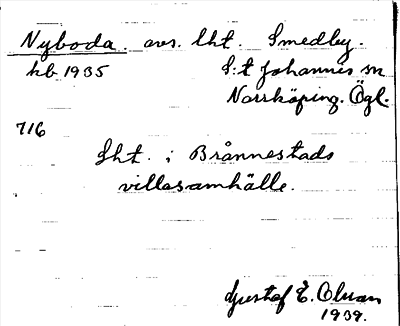 Nyboda. avs. lht. Smedby.
kb 1935 S:t Johannes sn
Norrköping. Ögl.
716
Lht. i Brånnestads
villasamhälle.
Gustaf E. Olson
1939.